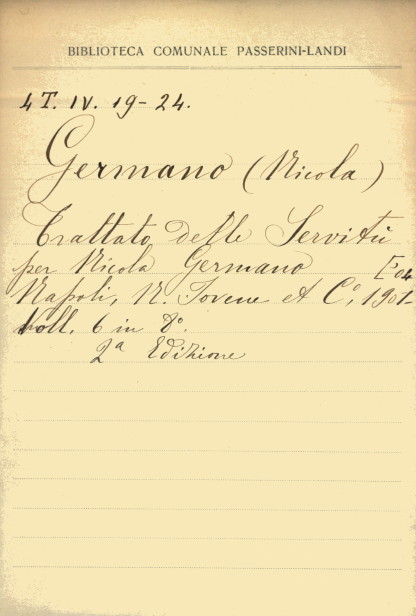 BIBLIOTECA COMUNALE PASSERINI-LANDI
4 T. IV. 19-24.
Germano (Nicola)
Trattato delle Servitù
per Nicola Germano ['04
Napoli, N. Jovene et Cº, 1901-
Voll. 6 in 8º.
2ª Edizione